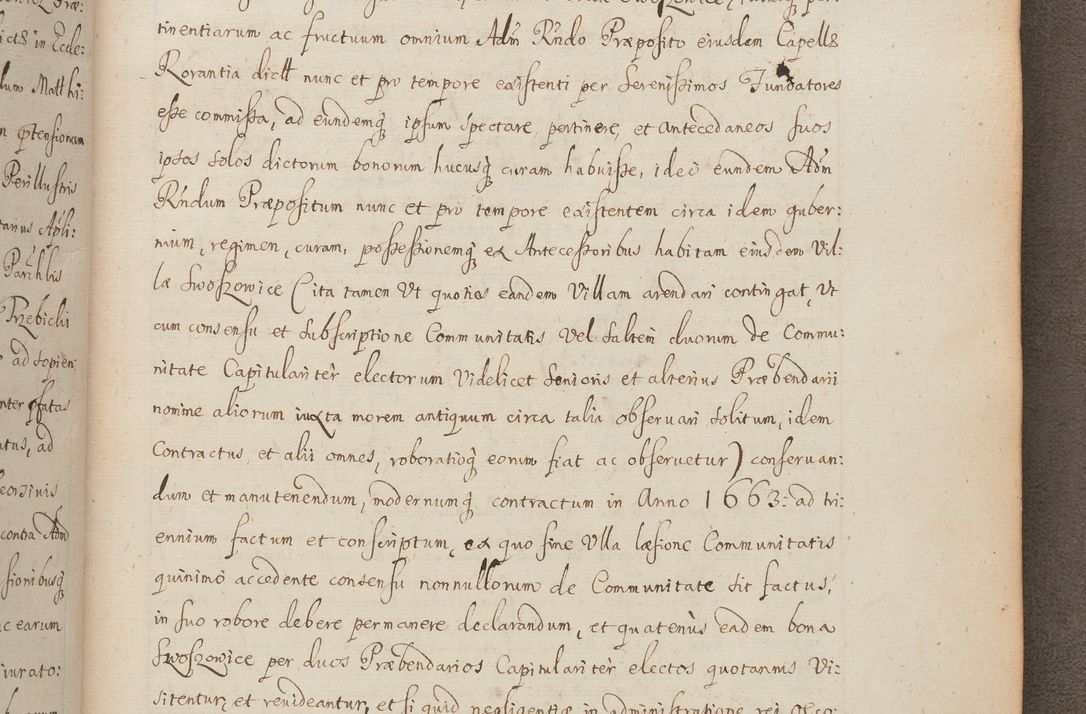 tinentiarum ac fructuum omnium Adm̃ R̃ndo Præposito eiusdem Capellæ
Rorantia dictæ nunc et pro tempore existenti per Serenissimos Fundatores
esse commissa, ad eundemq́ ipsum spectare, pertinere, et antecedaneos suos
ipsos solos dictorum bonorum hucusq́ curam habuisse, ideo eundem Adm̃
R̃ndum Præpositum nunc et pro tempore existentem circa idem guber:
nium, regimen, curam, possessionemq́ ex Antecessoribus habitam eiusdem Vil-
læ Swoszowice (ita tamen Vt quoties eandem Villam arendari contingat, Vt
cum consensu et subscriptione Communitatis Vel saltem duorum de Commu:
nitate Capitulariter electorum Videlicet Senioris et alterius Præbendarii
nomine aliorum iuxta morem antiquum circa talia observari solitum, idem
Contractus et alii omnes, roboratioq́ eorum fiat ac observetur) conservan:
dum et manutenendum, modernumq́ contractum in Anno 1663: ad tri:
ennium factum et conscriptum, ex quo sine Vlla læsione Communitatis
quinimò accedente consensu nonnullorum de Communitate sit factus,
in suo robore debere permanere declarandum, et quatenùs eadem bona
Swoszowice per duos Præbendarios Capitulariter electos quotannis Vi:
sitentur, et revideantur, et si quid negligentiæ in administratione rei
ictæ in Eccle:
Matthi:
ptensionem
Perillustris
Apli:
Parchlis
Przebicki
ad sopien:
inter pfatas
ad
contra Adm̃
sionibusq́
earum
iurato: